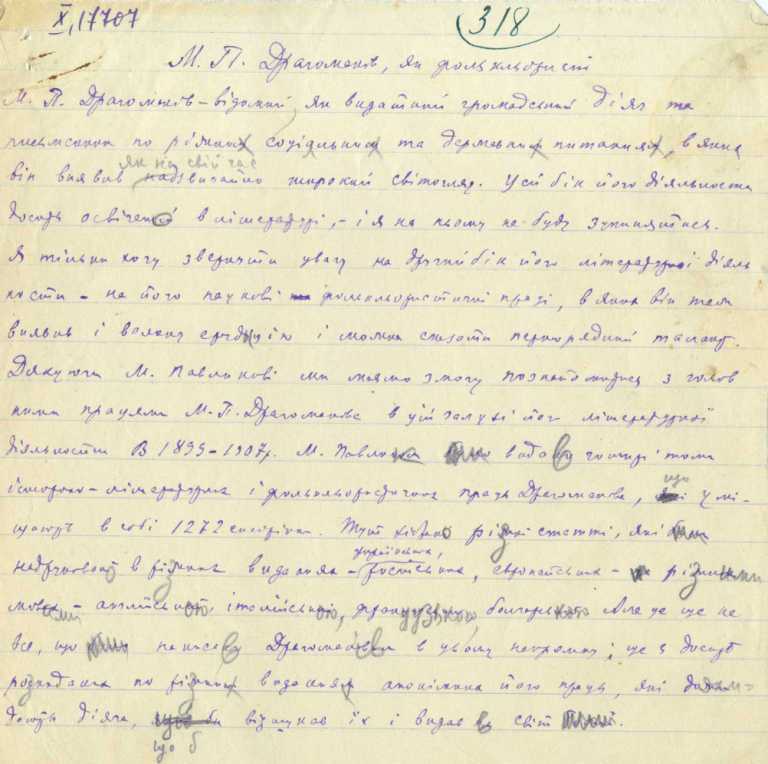 X, 17707
318
М. П. Драгоманів, як фольльорист
М. П. Драгоманів – відомий як видатний громадський діяч та
письменник по ріжних соціальних та державних питаннях, в яких
як на свій час
він виявив надзвичайно широкий світогляд. Усей бік його діяльности
досить освічений в літературі, – і я на ньому не буду зупинятись.
Я тільки хочу звернути увагу на другий бік його літературної діяль
ности – на його наукові фольклористичні праці, в яких він теж
виявив і велику ерудицію і можна сказати першорядний талант.
Дякуючи М. Павликові ми маємо змогу познайомитись з голов
ними працями М. П. Драгоманова в цій галузі його літературної
діяльности. В 1899–1907 р. М. Павлик видав чотирі томи
що
історико-літературних і фольклористичних праць Драгоманова, умі-
щають в собі 1272 сторінки. Тут різні статті, які
українських,
надруковані в різних виданнях – російських, європейських – різними
мовами – англійською, італійською, французькою, болгарською. Але це ще не
все, що написав Драгоманов в цьому напрямку; ще є досить
розкидана по різних виданнях анонімна його праця, які
діяча, відшукав їх і видав в світ.
що б